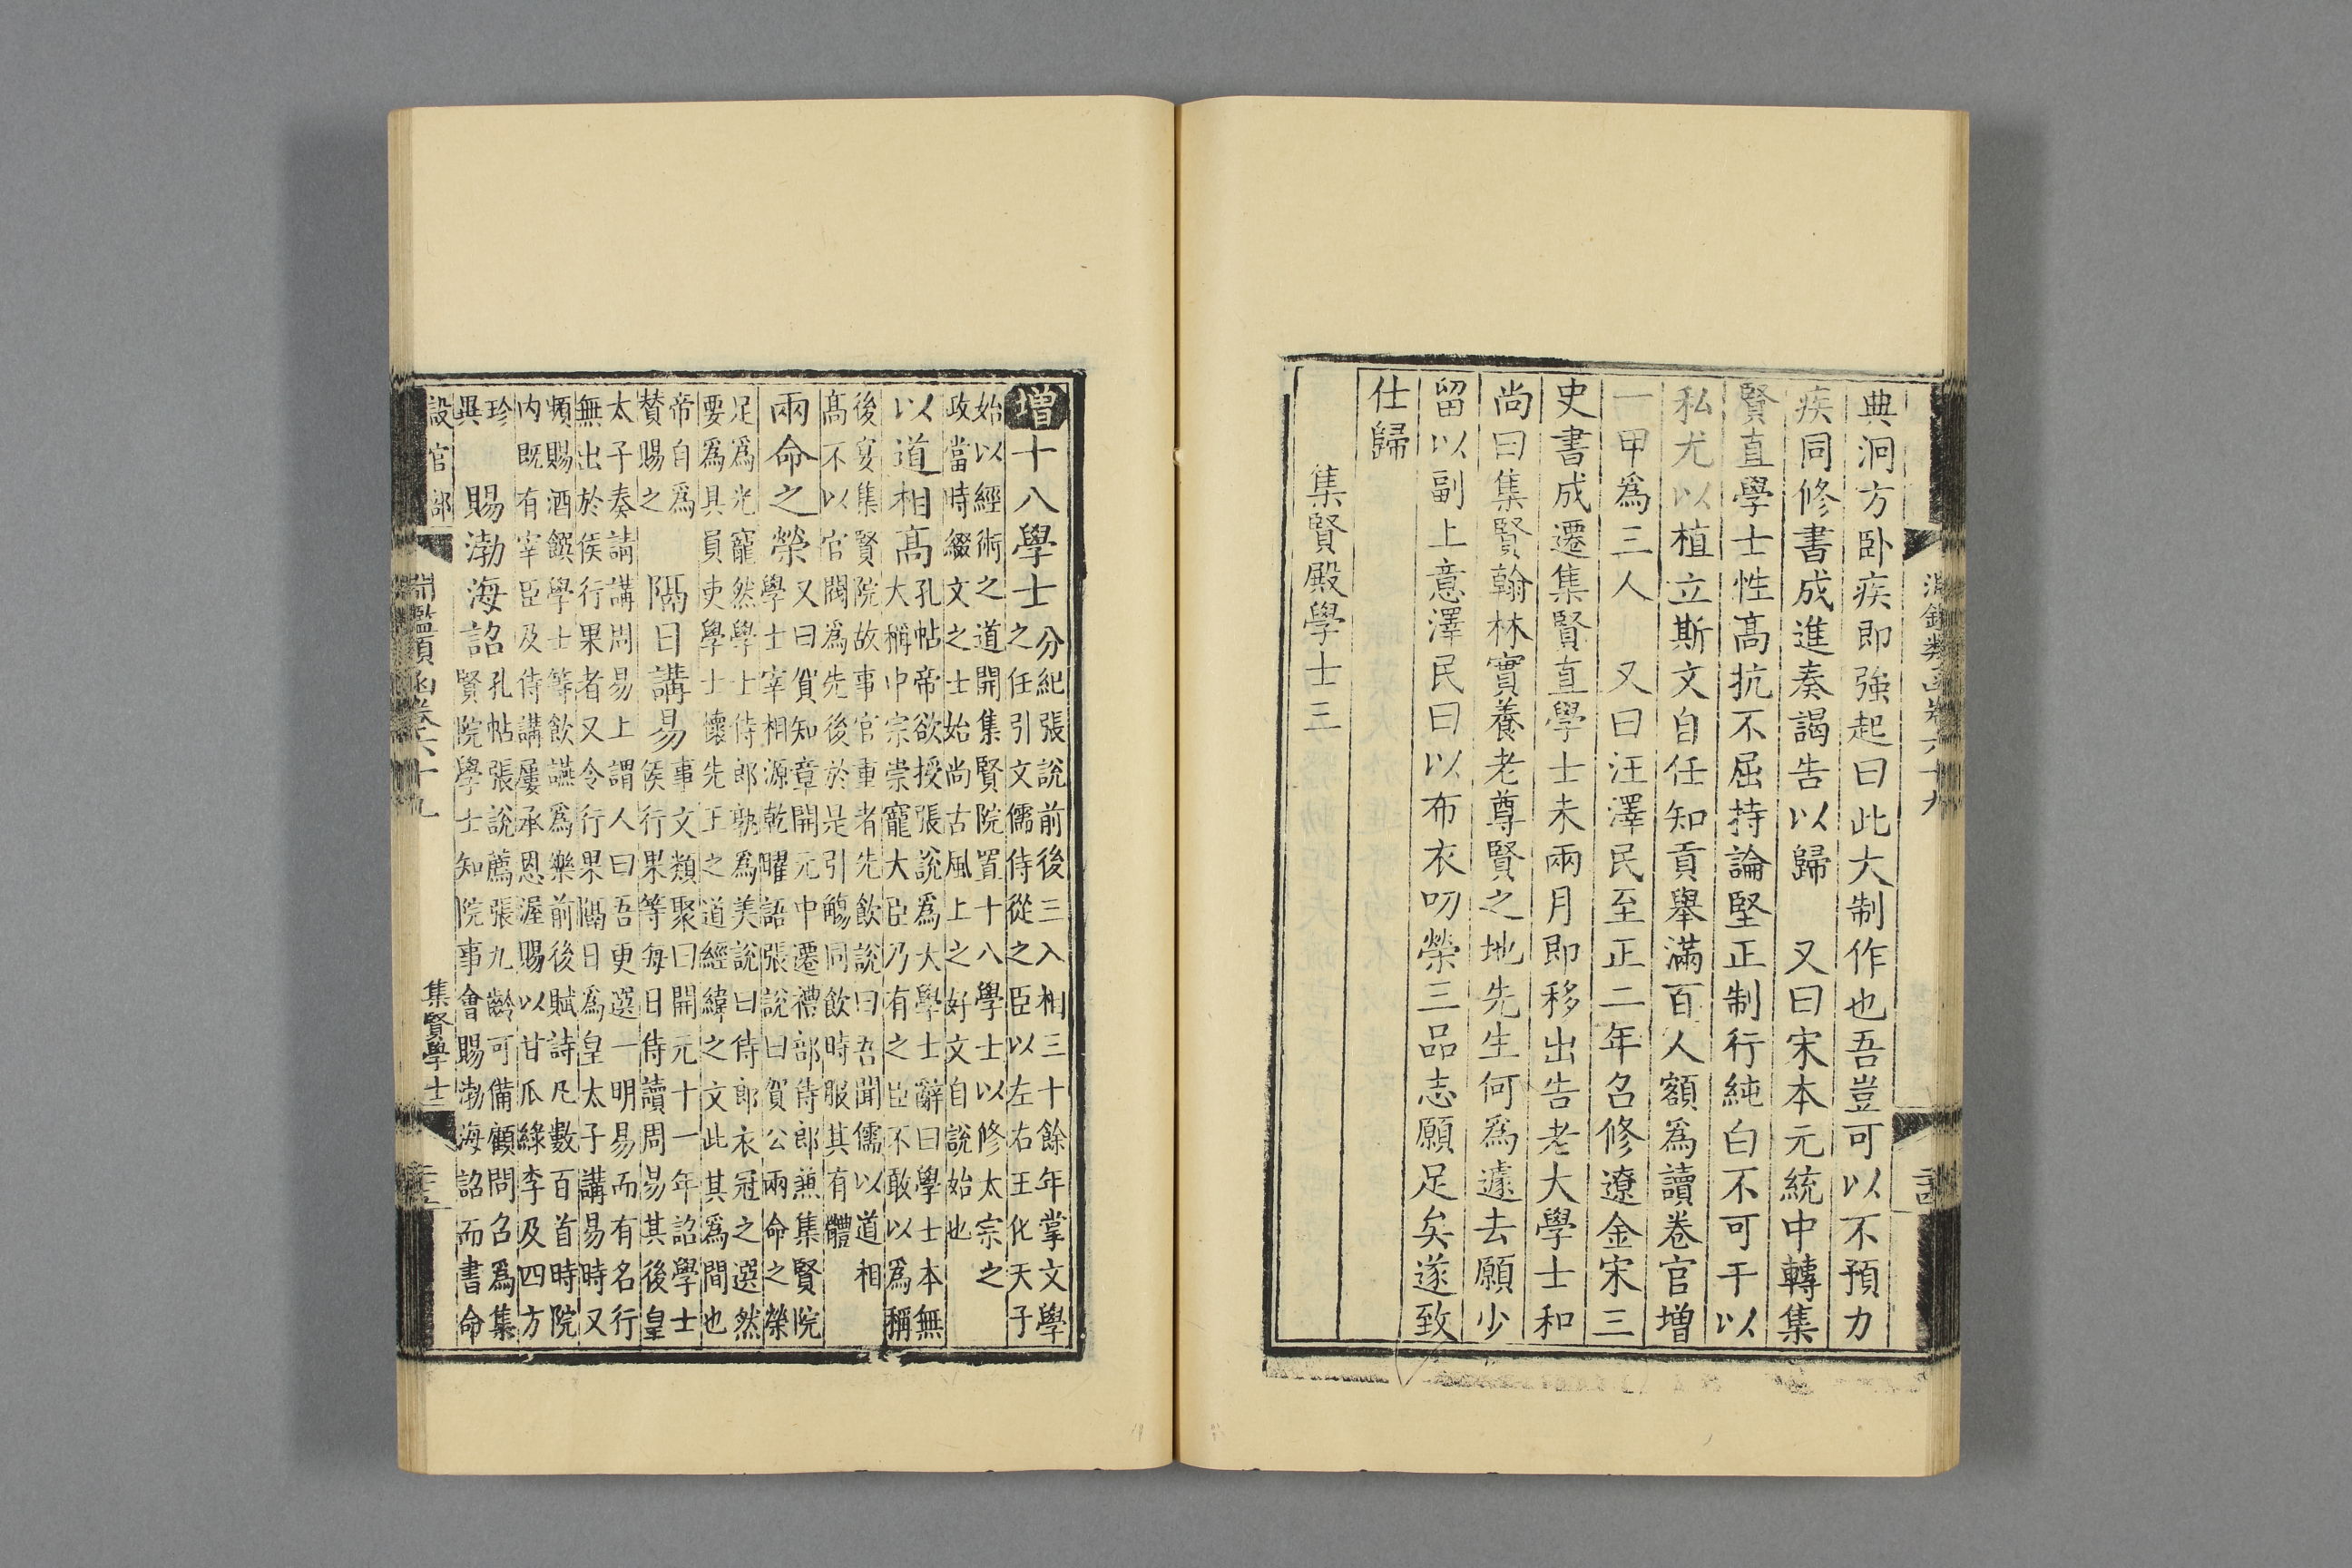 典洞方卧疾即強起曰此大制作也吾豈可以不預力
疾同修書成進奏謁告以歸　又曰宋本元統中轉集
賢直學士性高抗不屈持論堅正制行純白不可干以
私尤以植立斯文自任知貢舉滿百人額爲讀卷官增
一甲爲三人　又曰汪澤民至正二年召修遼金宋三
史書成遷集賢直學士未兩月即移出告老大學士和
尚曰集賢翰林實養老尊賢之地先生何爲遽去願少
留以副上意澤民曰以布衣叨榮三品志願足矣遂致
仕歸
集賢殿學士三
增十八學士
分紀張說前後三入相三十餘年掌文學
之任引文儒侍從之臣以左右王化天子
始以經術之道開集賢院置十八學士以修太宗之
政當時綴文之士始尚古風上之好文自說始也
以道相高
孔帖帝欲授張說爲大學士辭曰學士本無
大稱中宗崇寵大臣乃有之臣不敢以爲稱
後宴集賢院故事官重者先飲說曰吾聞儒以道相
高不以官閥爲先後於是引觴同飲時服其有體
兩命之榮
又曰賀知章開元中遷禮部侍郎兼集賢院
學士宰相源乾曜語張說曰賀公兩命之榮
足爲光寵然學上侍郎孰爲美說曰侍郎衣冠之選然
要爲具員吏學士懷先王之道經緯之文此其爲間也
帝自爲
賛賜之
隔日講易
事文類聚曰開元十一年詔學士
侯行果等每日侍讀周易其後皇
太子奏請講周易上謂人曰吾更選一明易而有名行
無出於侯行果者又令行果隔日爲皇太子講易時又
頻賜酒饌學士等飲讌爲樂前後賦詩凡數百首時院
内既有宰臣及侍講屢承恩渥賜以甘瓜綠李及四方
珍
異
賜渤海詔
孔帖張說薦張九齡可備顧問召爲集
賢院學士知院事會賜渤海詔而書命
設官部
淵鑑類函卷六十九
集賢學士